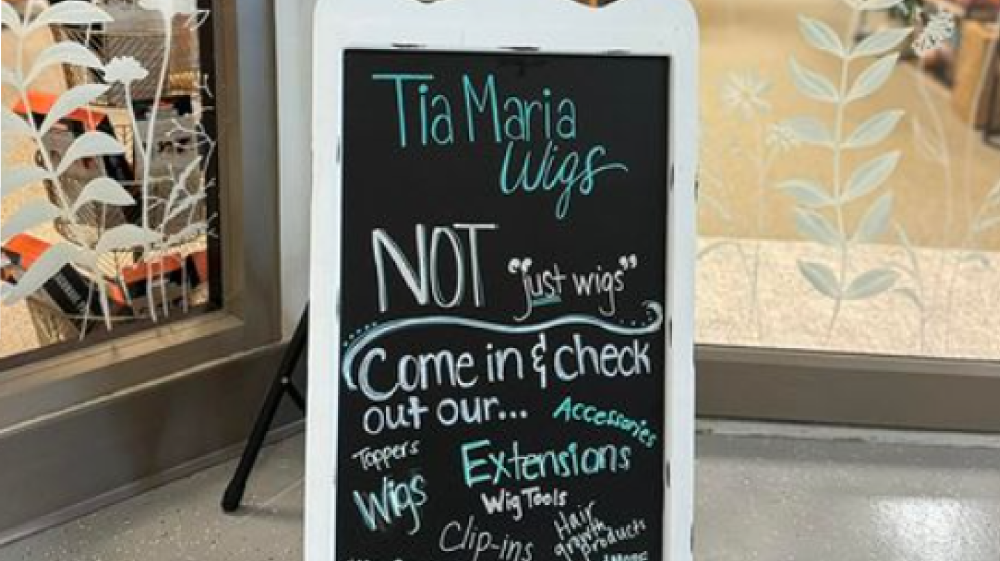 Tia Maria
Wigs
NOT "just wigs"
Come in & check
out our...
Accessories
Toppers
Extensions
Wigs
Wig Tools
Clip-ins
Hair
growth
products